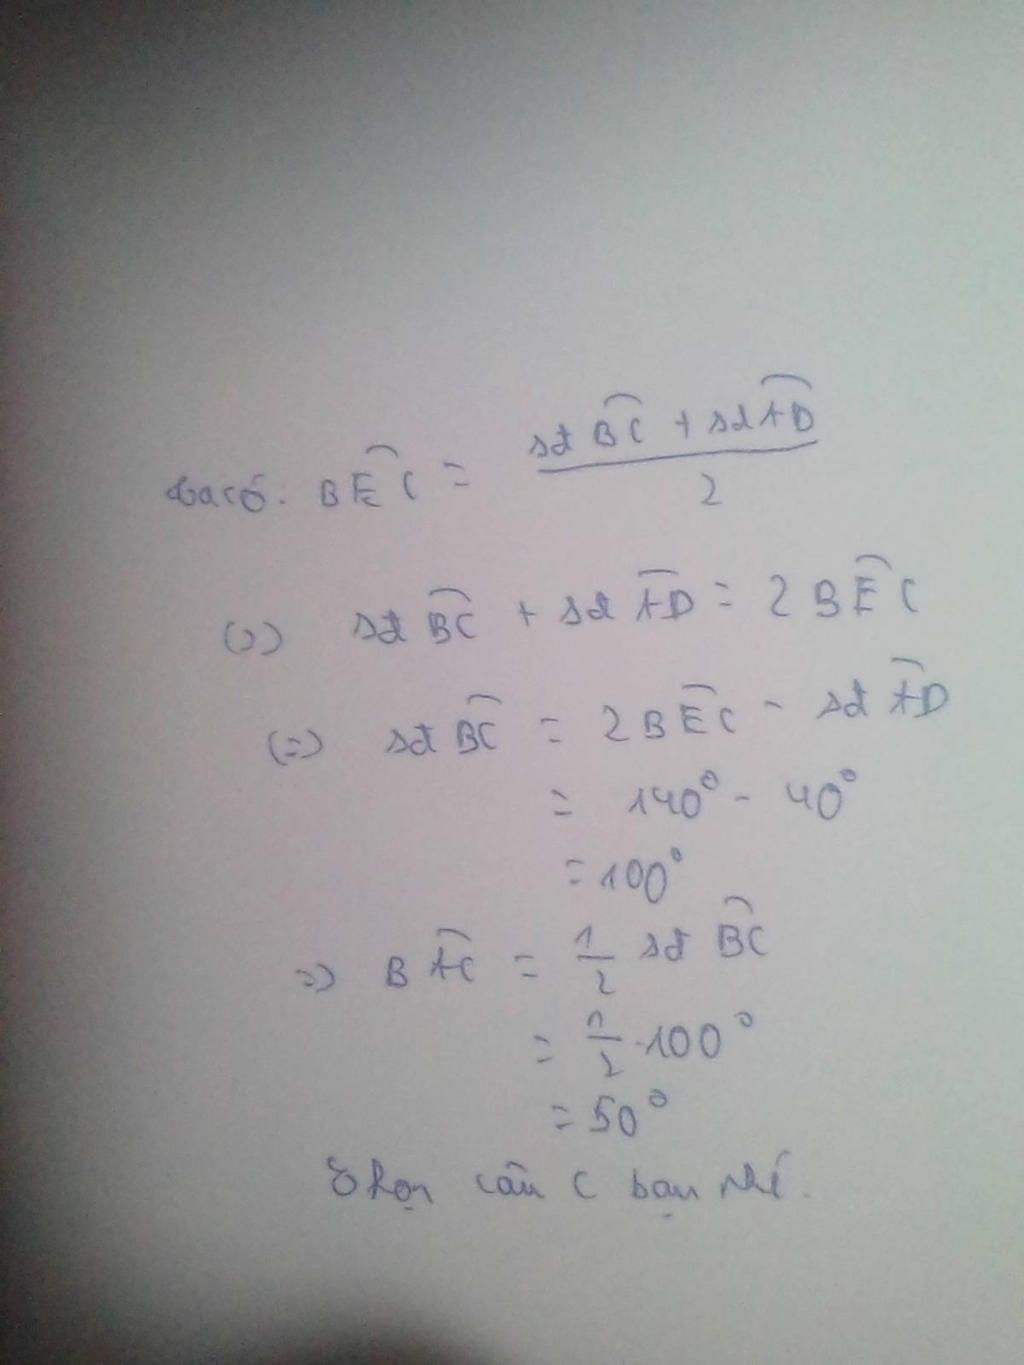 Ta có: BÊC = sđ BC + sđ AD / 2
(=) sđ BC + sđ AD = 2 BÊC
(=) sđ BC = 2 BÊC - sđ AD
= 140° - 40°
= 100°
=) BAC = 1/2 sđ BC
= 1/2 . 100°
= 50°
Chọn câu C bạn nhé.